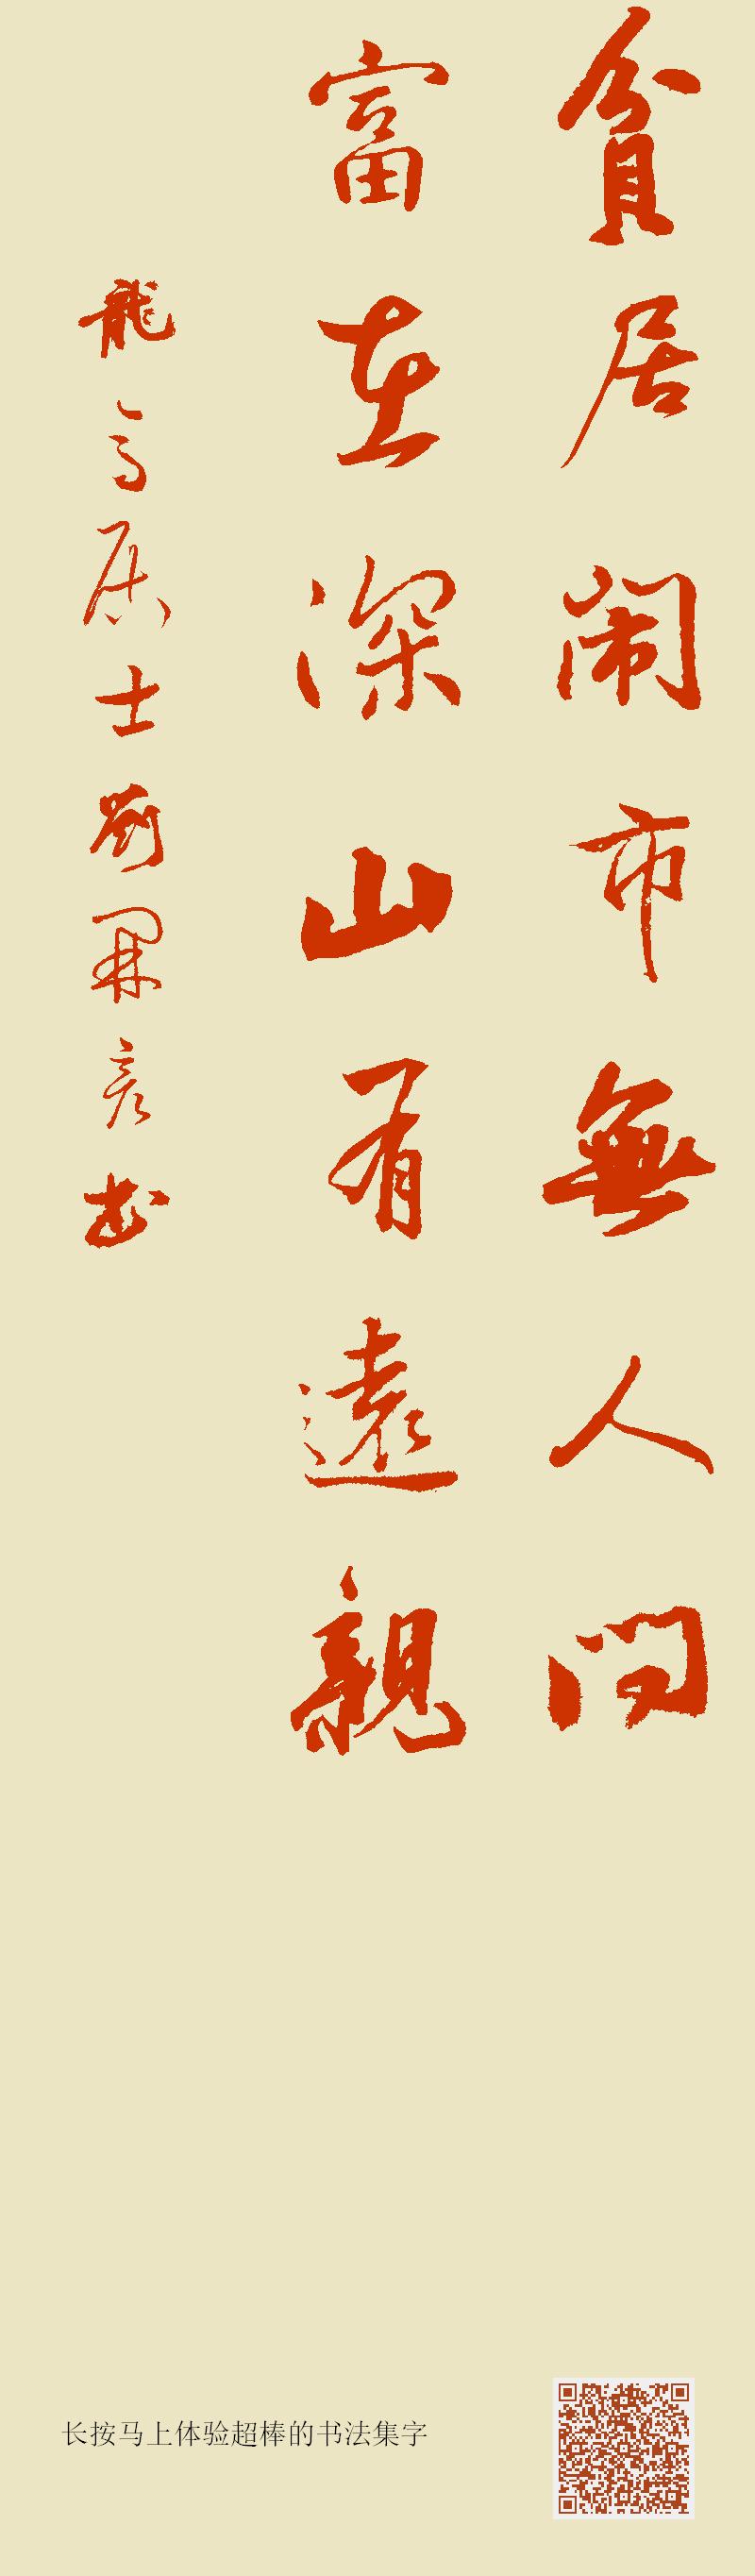 貧居闹市無人问
富在深山有遠親
龍亭居士劉開彦书
长按马上体验超棒的书法集字